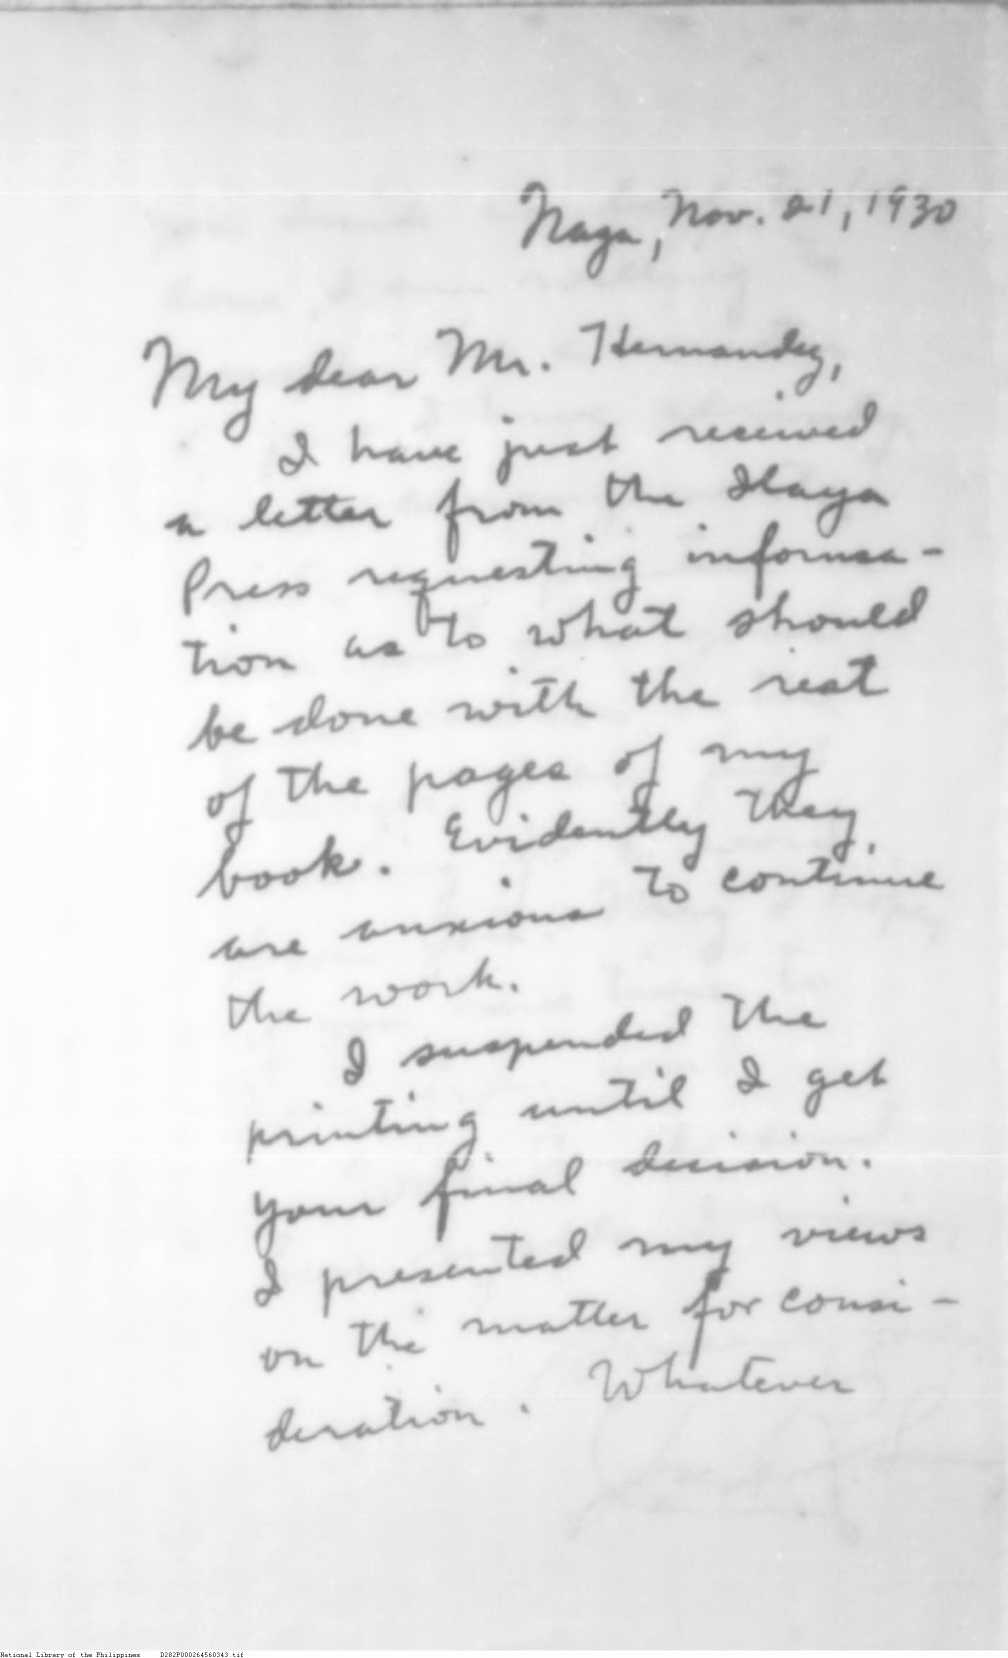 Naga, Nov. 21, 1930
My dear Mr. Hernandez,
I have just received
a letter from the Ilaya
Press requesting informa-
tion as to what should
be done with the rest
of the pages of my
book. Evidently they
are anxious to continue
the work.
I suspended the
printing until I get
your final decision.
I presented my views
on the matter for consi-
deration. Whatever
National Library of the Philippines D282P000264560343.tif